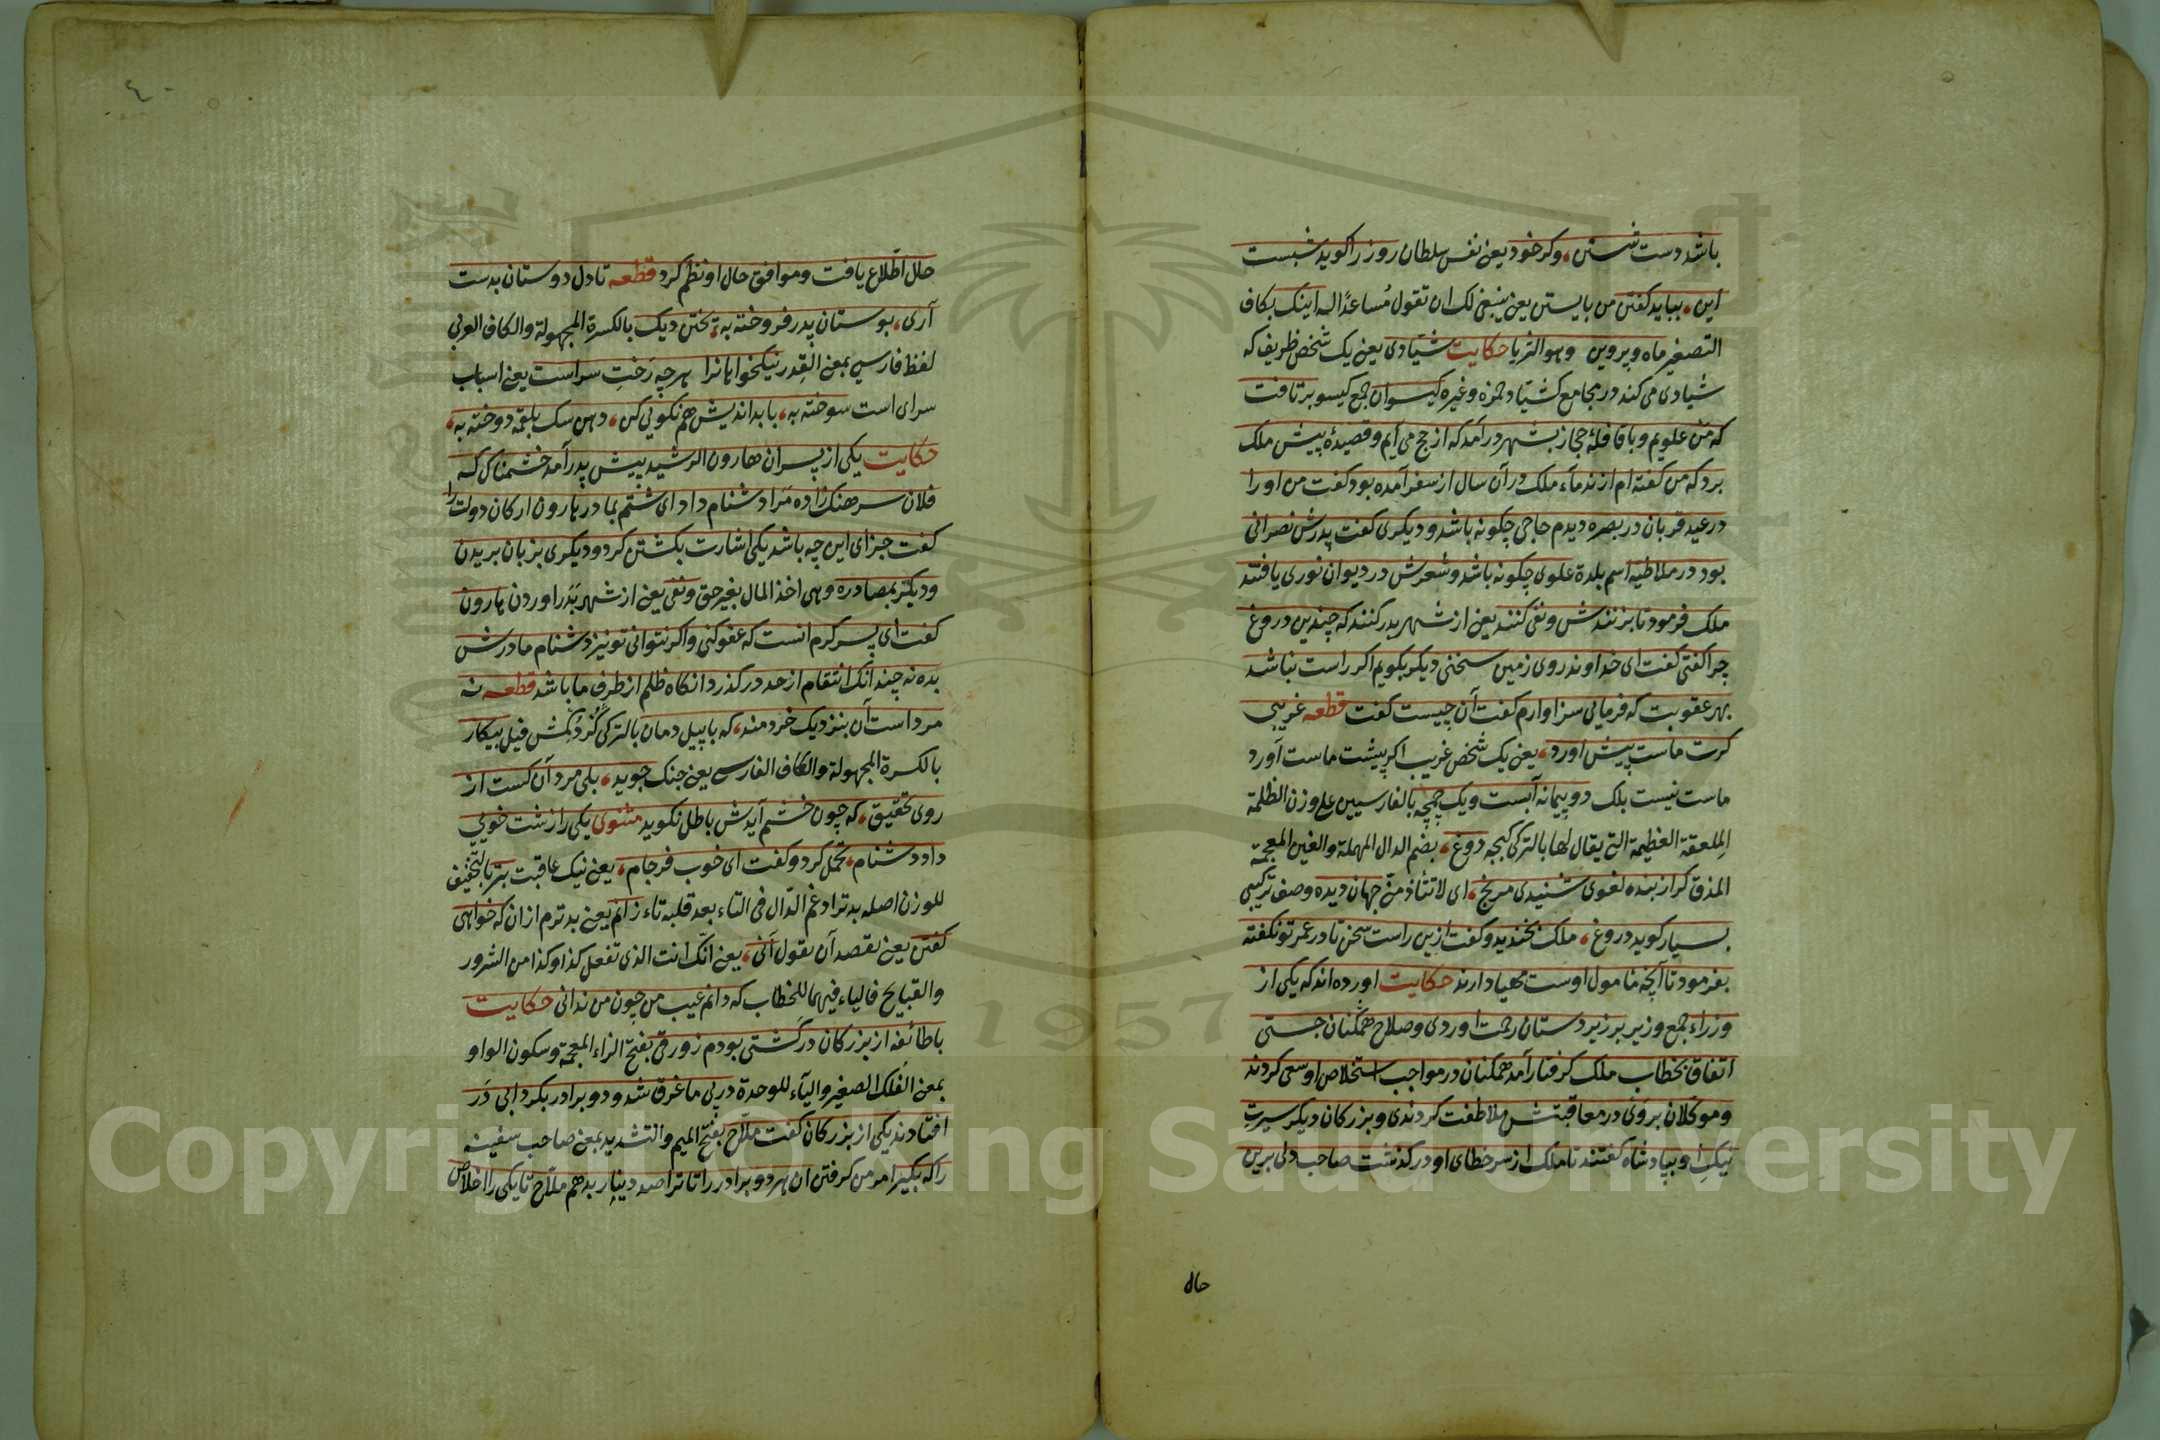 باشد دست شستن، وكر خود يعنى نفس سلطان روز را كويد شبست
اين، ببايد كفتن من بايستن يعنى ينبغى لك ان تقول مُساعدًا له اينك بكاف
التصغير ماه وپروين وهو الثريا حكايت شيّادى يعنى يك شخص ظريف كه
شيادى مى كند در مجامع كشيّاد حمزه وغيره كيسوان جمع كيسو برتافت
كه من علويم وبا قافلهٔ حجاز بشهر درآمد كه از حج مى آيم وقصيدهٔ پيش ملك
برد كه من كفته ام از ندماء ملك در آن سال از سفر آمده بود كفت من اورا
در عيد قربان در بصره ديدم حاجى چكونه باشد وديكرى كفت پدرش نصرانى
بود در ملاطيه اسم بلدة علوى چكونه باشد وشعرش در ديوان نورى يافتند
ملك فرمود تا بزنندش ونفى كنند يعنى از شهر بدر كنند كه چندين دروغ
چرا كفتى كفت اى خداوند روى زمين سخنى ديكر بكويم اكر راست نباشد
بهر عقوبت كه فرمايى سزاوارم كفت آن چيست كفت قطعه غريبى
كرت ماست پيش اورد، يعنى يك شخص غريب اكر پيشت ماست آورد
ماست نيست بلك دو پيمانه آبست ويك چمچه بالفارسيين على وزن الظلمة
المِلعقة العظيمة التى يقال لها بالتركى كبجه دوغ، بضم الدال المهملة والغين المعجمة
المذق كر از بنده لغوى شنيدى مرنج، اى لا تتأذ منى جهان ديده وصف تركيبى
بسيار كويد دروغ، ملك بخنديد وكفت ازين راست سخن تا در عمر تو نكفته
بفرمود تا آنچه مأمول اوست مهيا دارند حكايت اورده اند كه يكى از
وزراء جمع وزير بر زير دستان رحمت اوردى وصلاح همكنان جستى
اتفاق بخطاب ملك كرفتار آمد همكنان در مواجب استخلاص او سعى كردند
وموكلان بروَى در معاقبتش ملاطفت كردندى وبزركان ديكر سيرتِ
نيكِ او بپادشاه كفتند تا ملك از سر خطاى او در كذشت صاحب دلى برين
حال
٤٠
حال اطّلاع يافت وموافق حال او نظم كرد قطعه تا دل دوستان بدست
آرى، بوستان پدر فروخته به، پختن ديك بالكسرة المجهولة والكاف العربى
لفظ فارسى بمعنى القِدر نيكخواهانرا هرچه رَختِ سراست يعنى اسباب
سراى است سوخته به، با بدانديش هم نكويى كن، دهن سك بلقمه دوخته به،
حكايت يكى از پسران هارون الرشيد پيش پدر آمد خشمناك كه
فلان سرهنك زاده مَرا دشنام داد اى شتم بمادر هارون اركان دولت را
كفت جزاى اين چه باشد يكى اشارت بكشتن كرد وديكرى بزبان بريدن
وديكر بمصادره وهى اخذ المال بغير حق ونفى يعنى از شهر بَدَر اوردن هارون
كفت اى پسر كرم انست كه عفو كنى واكر نتوانى تو نيز دشنام مادرش
بده نه چندانك انتقام از حد در كذرد انكاه ظلم از طرف ما باشد قطعه نه
مرداست آن بنزديك خردمند، كه با پيل دمان بالتركى كُزدُكمش فيل پيكار
بالكسرة المجهولة والكاف الفارسى يعنى جنك جويد، بلى مرد آن كست از
روى تحقيق، كه چون خشم آيدش باطل نكويد مثنوى يكى را زشت خويى
داد دشنام، تحمل كرد وكفت اى خوب فرجام، يعنى نيك عاقبت بتر بالتخفيف
للوزن اصله بدتر ادغم الدّال فى التاء بعد قلبه تاء زانم يعنى بدترم از ان كه خواهى
كفتن يعنى تقصد آن تقول آنى، يعنى انّك انت الذى تفعل كذا وكذا من الشرور
والقبايح فالياء فيهما للخطاب كه دانم عيب من چون من ندانى حكايت
با طائفه از بزركان در كَشتى بودم زورقى بفتح الزاء المعجمة وسكون الواو
بمعنى الفُلك الصغير والياء للوحدة در پى ما غرق شد ودو برادر بكردابى دَر
افتادند يكى از بزركان كفت ملاّح بفتح الميم والتشديد بمعنى صاحب سفينه
را كه بكير امر من كرفتن ان هردو برادر را تا ترا صد دينار بدهم ملاّح تا يكى را اخلاص
Copyright © King Saud University
1957